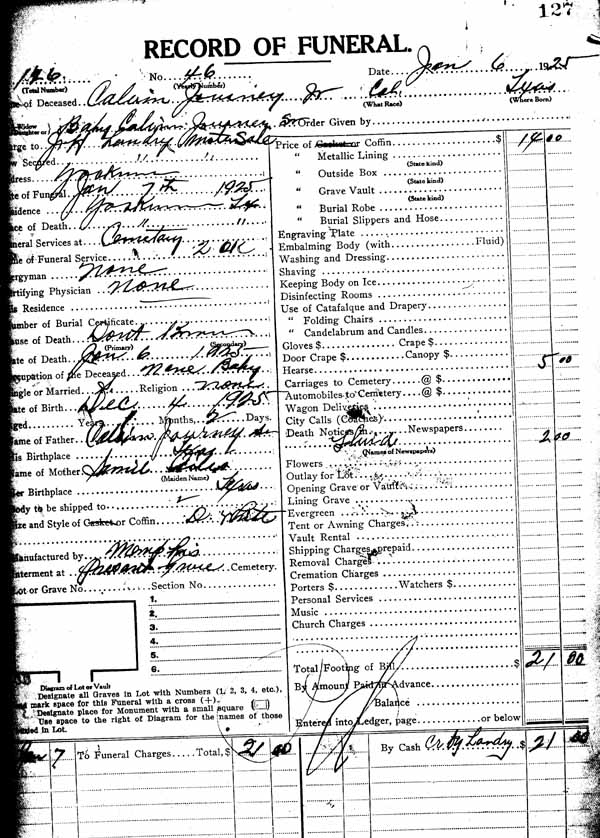 127
RECORD OF FUNERAL.
146. No. 46 Date Jan 6 1925
(Total Number) (Yearly Number)
of Deceased Calvin Journey Jr Col. Texas
(What Race) (Where Born)
Widow Baby Calvin Journey Sr Order Given by
Daughter or)
rge to Landry
w Secured
dress Yoakum
te of Funeral Jan 7th 1925
sidence Yoakum Tx
ce of Death " "
neral Services at Cemetary
me of Funeral Service 2 oK
ergyman None
rtifying Physician none
is Residence
umber of Burial Certificate
use of Death Dont Know
(Primary) (Secondary)
ate of Death Jan 6 1925
ccupation of the Deceased None Baby
ngle or Married S. Religion none
ate of Birth Dec 4 1925
ged Years 1 Months, 2 Days.
ame of Father Calvin Journey Sr
is Birthplace Texas
ame of Mother
(Maiden Name)
er Birthplace Texas
ody to be shipped to
ize and Style of Casket or Coffin White
Manufactured by Memphis
nterment at Grove Cemetery.
Lot or Grave No. Section No.
1.
2.
3.
4.
5.
6.
Diagram of Lot or Vault
Designate all Graves in Lot with Numbers (1, 2, 3, 4, etc.),
nd mark space for this Funeral with a cross (+).
Designate place for Monument with a small square
Use space to the right of Diagram for the names of those
in Lot.
Price of Casket or Coffin $ 14 00
" Metallic Lining
(State kind)
" Outside Box
(State kind)
" Grave Vault
(State kind)
" Burial Robe
" Burial Slippers and Hose
Engraving Plate
Embalming Body (with Fluid)
Washing and Dressing
Shaving
Keeping Body on Ice
Disinfecting Rooms
Use of Catafalque and Drapery
" Folding Chairs
" Candelabrum and Candles
Gloves $ Crape $
Door Crape $ Canopy $
Hearse 5 00
Carriages to Cemetery @ $
Automobiles to Cemetery @ $
Wagon Deliveries
City Calls (Coaches)
Death Notices in Newspapers
Fluid 2 00
(Names of Newspapers)
Flowers
Outlay for Lot
Opening Grave or Vault
Lining Grave
Evergreen
Tent or Awning Charges
Vault Rental
Shipping Charges, prepaid
Removal Charges
Cremation Charges
Porters $ Watchers $
Personal Services
Music
Church Charges
Total Footing of Bill $ 21 00
By Amount Paid in Advance
Balance
Entered into Ledger, page or below
7 To Funeral Charges Total, $ 21 00 By Cash Cr. By Landry $ 21 00